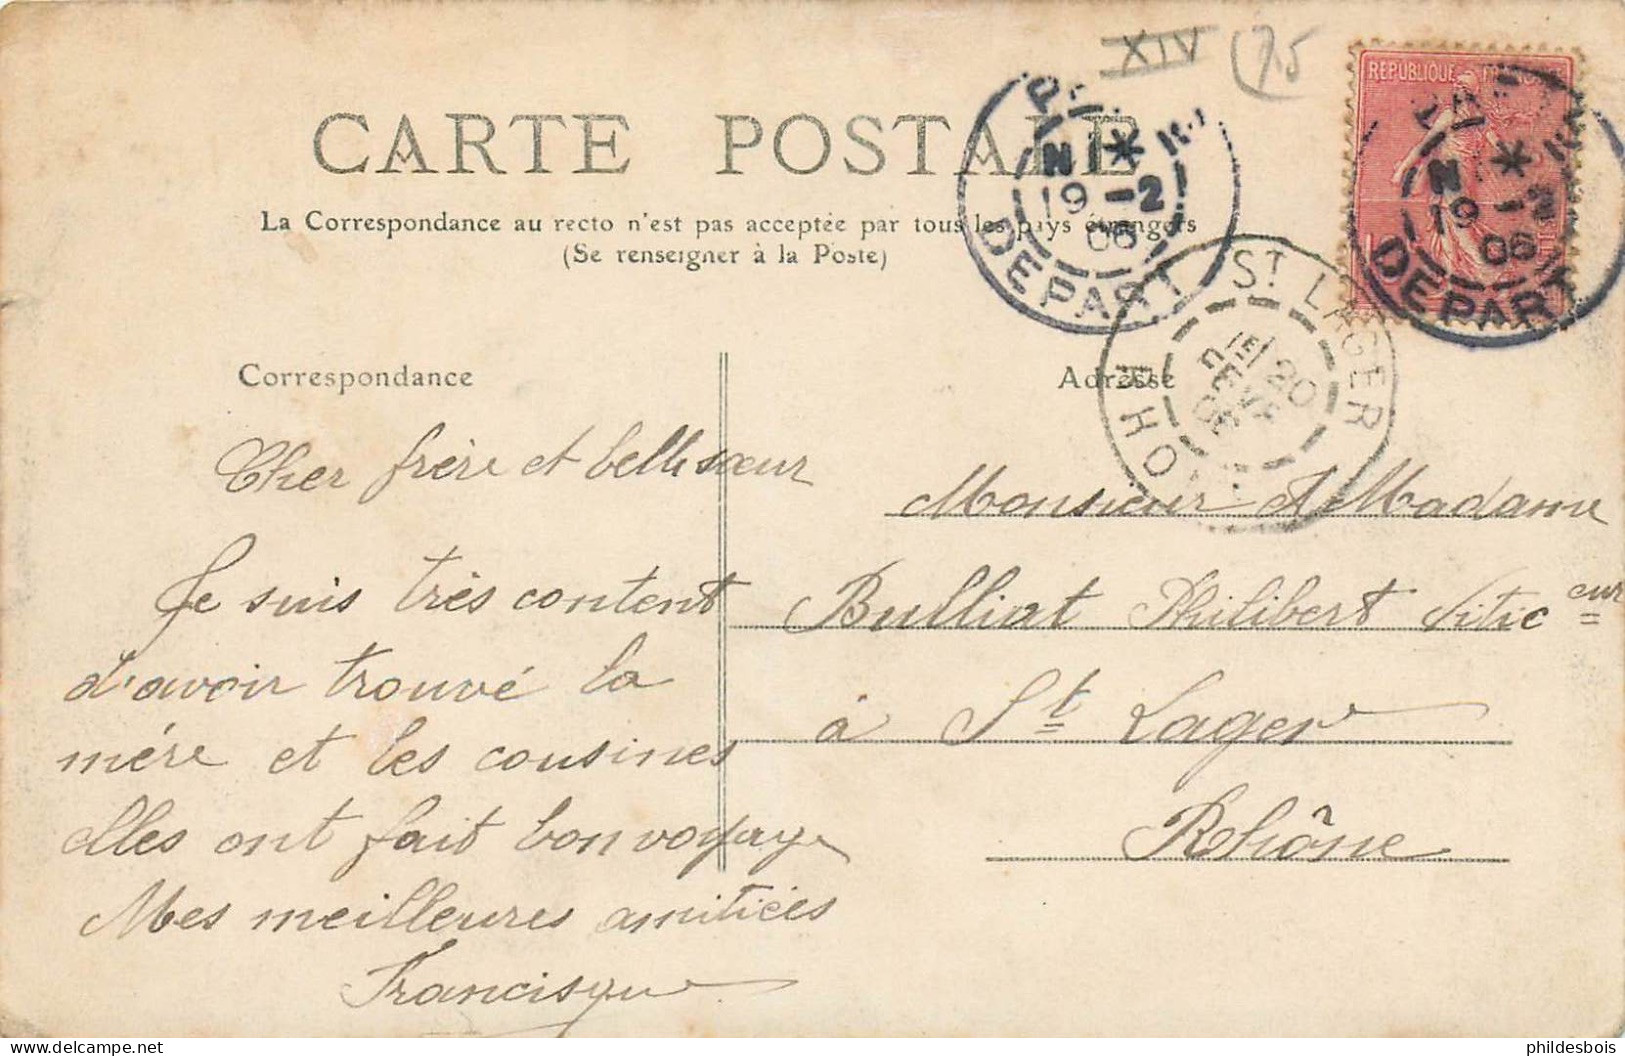 XIV (75
CARTE POSTALE
La Correspondance au recto n'est pas acceptée par tous les pays étrangers
(Se renseigner à la Poste)
REPUBLIQUE FRANÇAISE
19 -2
06
DEPART
19 -2
06
DEPART
ST LAGER
RHONE
20
Correspondance
Adresse
Cher frère et belle sœur
Je suis très content
d'avoir trouvé la
mère et les cousines
elles ont fait bon voyage
Mes meilleures amitiées
Francisque
Monsieur et Madame
Bulliat Philibert Vitic eur
à St Lager
Rhône
phildesbois